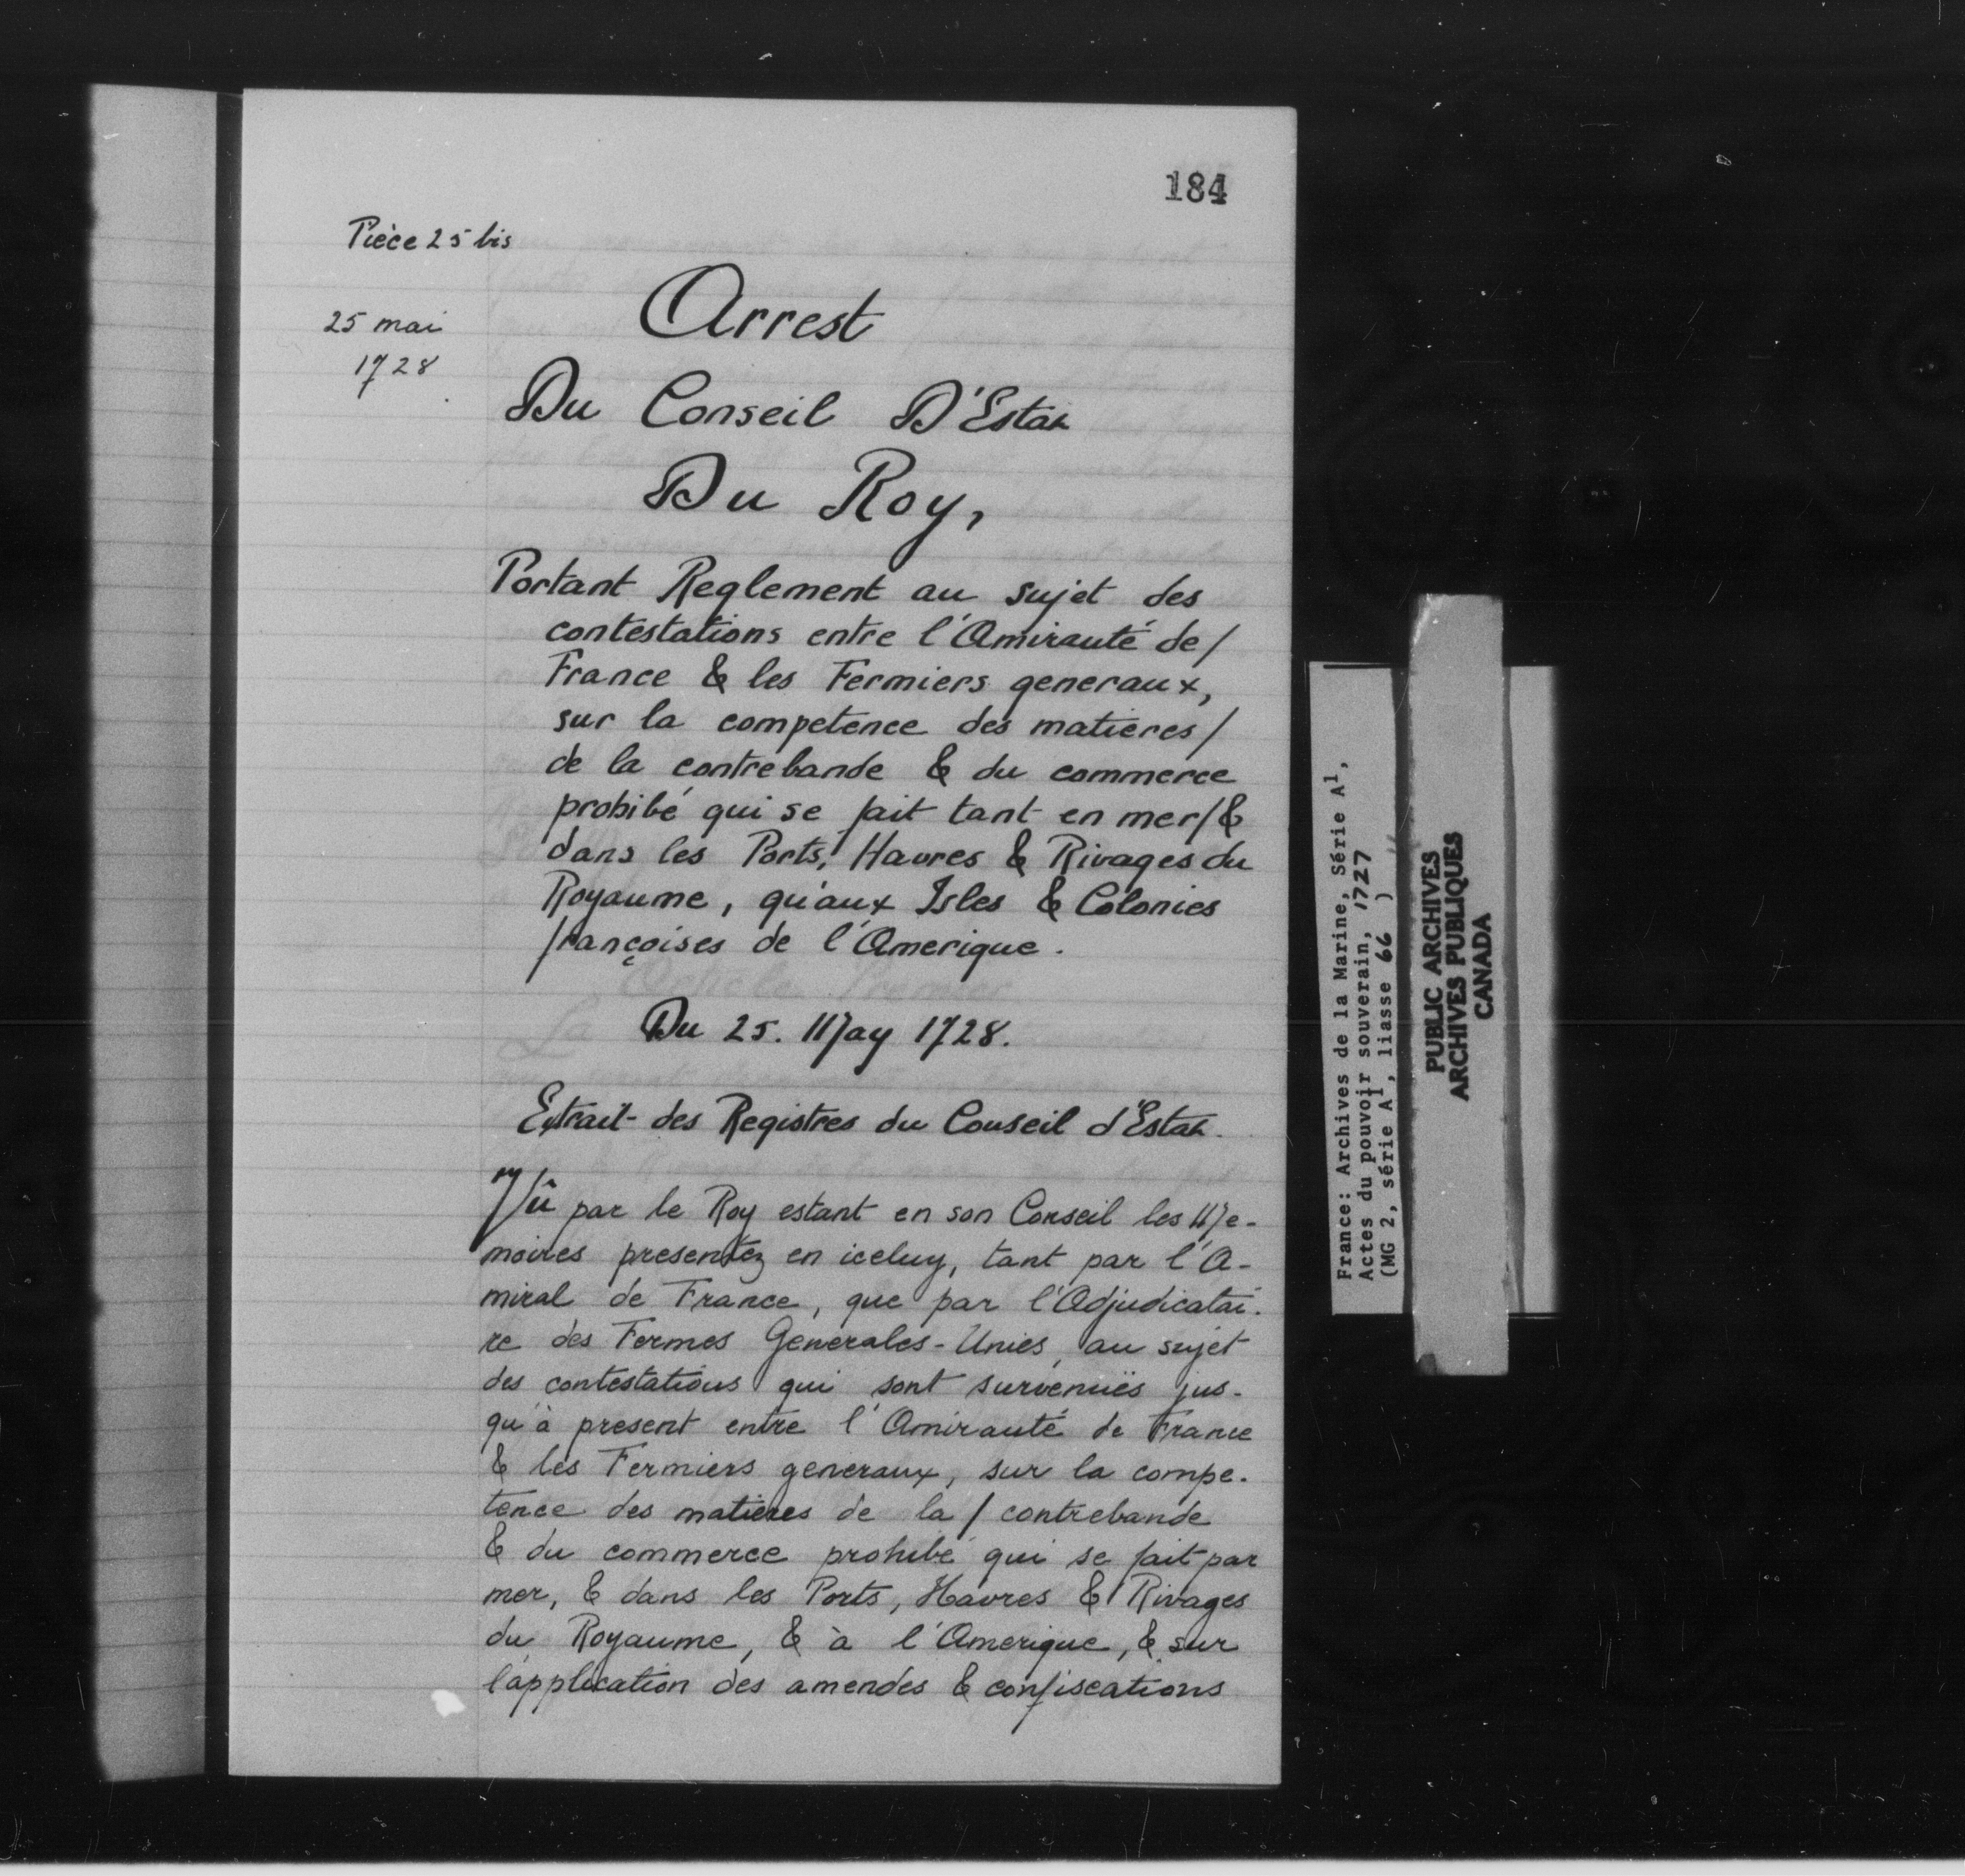 184
Pièce 25 bis
25 mai
1728
Arrest
Du Conseil D'Estat
Du Roy,
Portant Reglement au sujet des
contestations entre l'Amirauté de/
France & les Fermiers generaux,
sur la competence des matieres/
de la contrebande & du commerce
prohibé qui se fait tant en mer/&
dans les Ports, Havres & Rivages du
Royaume, qu'aux Isles & Colonies
françoises de l'Amerique.
Du 25. May 1728.
Extrait des Registres du Conseil d'Estat.
Vû par le Roy estant en son Conseil les Me-
moires presentez en iceluy, tant par l'A-
miral de France, que par l'Adjudicatai-
re des Fermes Generales-Unies, au sujet
des contestations qui sont survenuës jus-
qu'à present entre l'Amirauté de France
& les Fermiers generaux, sur la compe-
tence des matieres de la / contrebande
& du commerce prohibé qui se fait par
mer, & dans les Ports, Havres & Rivages
du Royaume, & à l'Amerique, & sur
l'application des amendes & confiscations
France: Archives de la Marine, Série A1,
Actes du pouvoir souverain, 1727
(MG 2, série A1, liasse 66 )
PUBLIC ARCHIVES
ARCHIVES PUBLIQUES
CANADA